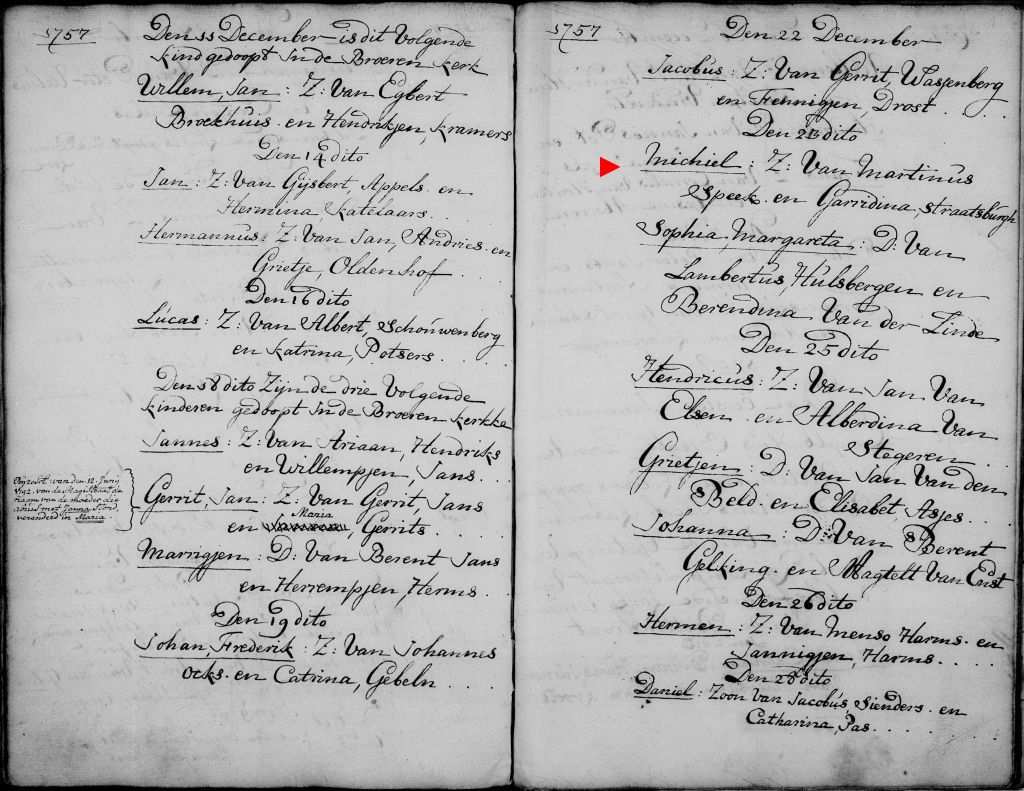 1757
Den 11 December is dit Volgende
kind gedoopt In de Broeren kerk
Willem, Jan : Z: Van Egbert
Broekhuis en Hendrikjen, kramers
Den 14 dito
Jan : Z: Van Gijsbert, Appels en
Hermina Katelaars.
Hermannus: Z: Van Jan, Andries en
Grietje, Oldenhof
Den 16 dito
Lucas : Z: Van Albert, Schouwenberg
en Katrina, Potsers.
Den 18 dito Zijn de drie Volgende
kinderen gedoopt In de Broeren kerkke
Jannes : Z: Van Ariaan, Hendriks
en Willempjen, Jans
Gerrit, Jan : Z: Van Gerrit, Jans
Maria
en , Gerrits
Marrigjen : D: Van Berent Jans
en Herrempjen, Herms.
Den 19 dito
Johan, Frederik : Z: Van Johannes
Ocks en Catrina, Gebeln
van den 12 Junij
1792 van de
naam van de moeder die
abuis met Janna
veranderd in Maria.
1757
Den 22 December
Jacobus : Z: Van Gerrit Wassenberg
en Fennigjen Drost.
Den 23 dito
Michiel : Z: Van Martinus
Speek en Garridina, Straatsburgh
Sophia, Margareta : D: Van
Lambertus, Hulsbergen en
Berendina Van der Linde
Den 25 dito
Hendricus : Z: Van Jan Van
Elsen en Alberdina Van
Stegeren
Grietjen : D: Van Jan Van den
Beld en Elisabet Asjes
Johanna : D: Van Berent
Gelking en Magtelt Van Enst
Den 26 dito
Hermen : Z: Van Menso Harms en
Jannigjen, Harms.
Den 28 dito
Daniel : Zoon Van Jacobus, Sienders en
Catharina, Pas.